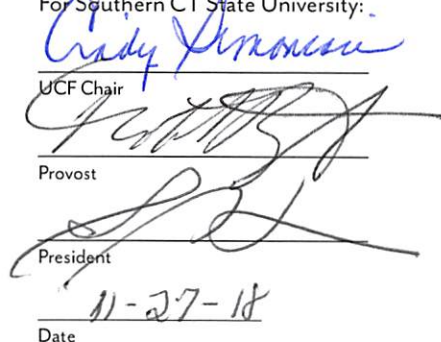 For Southern CT State University:
Cindy Simoneau
UCF Chair
Provost
President
11-27-18
Date